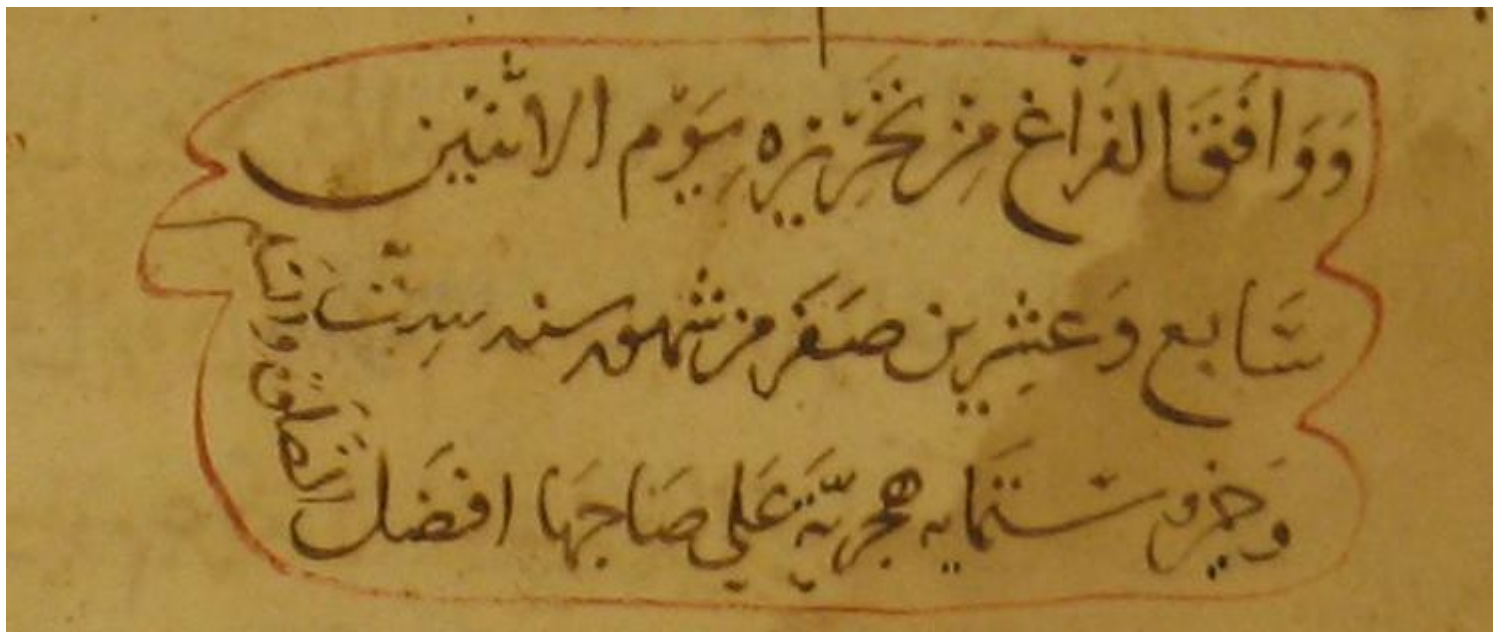 وَوَافَقَ الفَرَاغ مِن تَحْرِيرِه يَوْم الاثنين
سَابع وَعشرين صَفَر من شهور سنه سِتّ
وَخمسين وستمايه هجريّة عَلي صَاحبهَا افضَل
الصَّلوة والسلام